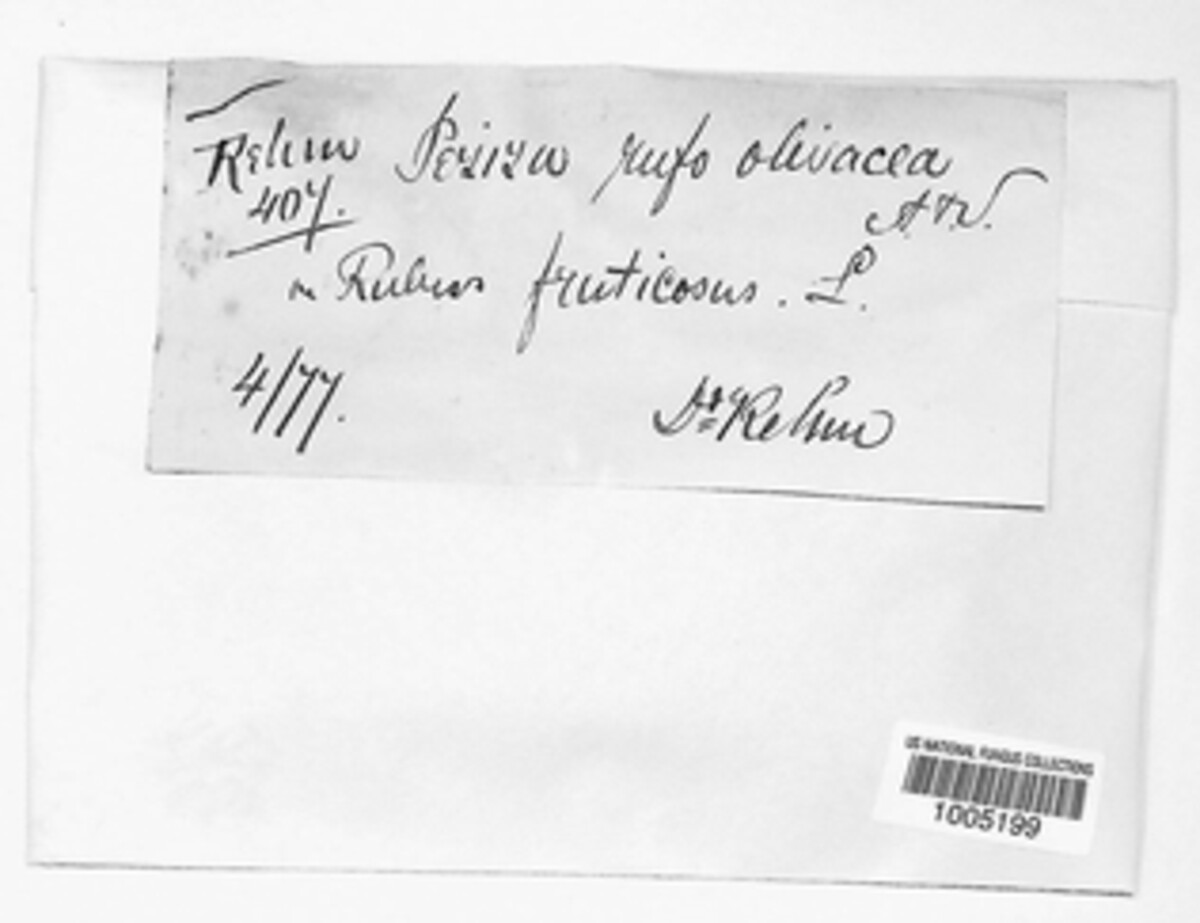 Rehm Peziza rufo olivacea
407. A & S.
on Rubus fruticosus. L.
4/77. Dr Rehm
US NATIONAL FUNGUS COLLECTIONS
1005199